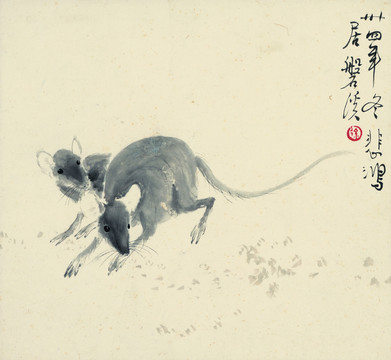 卅四年冬悲鸿
居磐溪